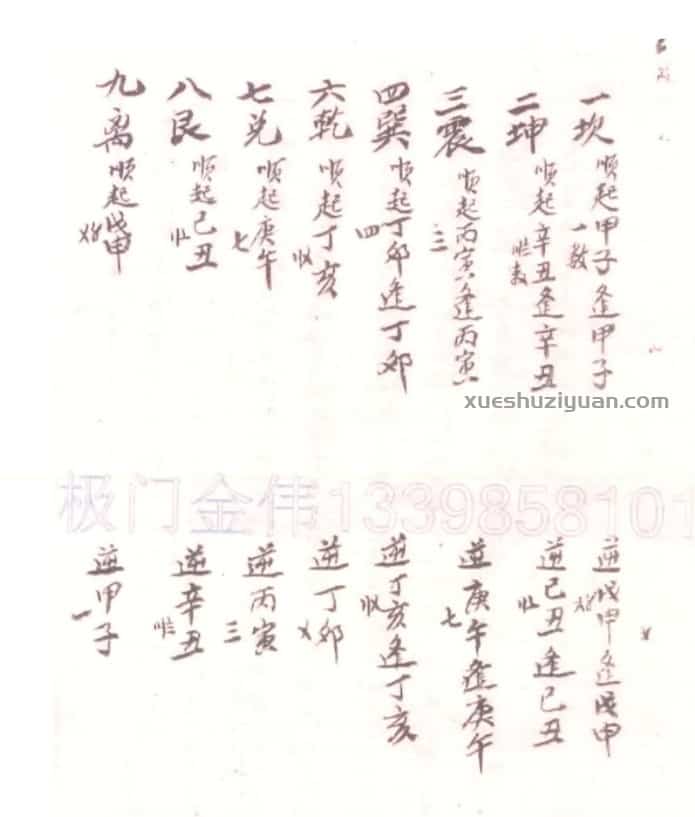 一坎 顺起甲子逢甲子
一数
二坤 顺起辛丑逢辛丑
三震 顺起丙寅逢丙寅
三
四巽 顺起丁卯逢丁卯
四
六乾 顺起丁亥
七兑 顺起庚午
七
八艮 顺起己丑
九离 顺起戊申
逆戊申逢戊申
逆己丑逢己丑
逆庚午逢庚午
七
逆丁亥逢丁亥
逆丁卯
逆丙寅
三
逆辛丑
逆甲子
一
xueshuziyuan.com
极门金伟1339858101